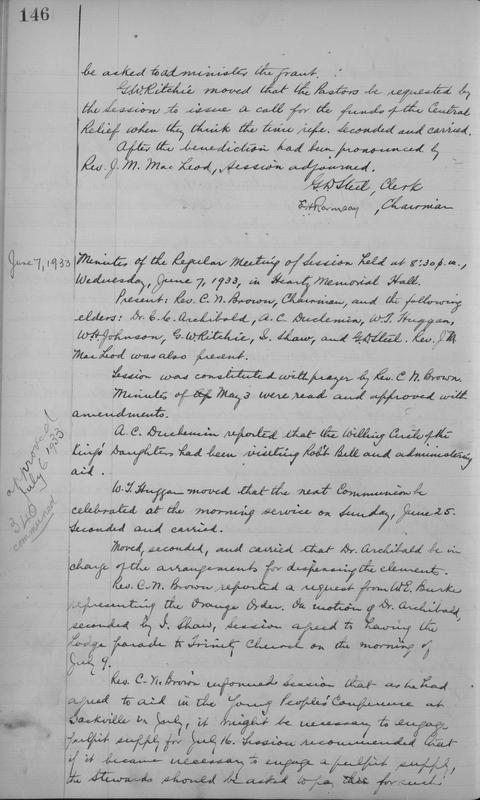 146
be asked to administer the grant.
G.W. Ritchie moved that the Pastors be requested by
the Session to issue a call for the funds of the Central
Relief when they think the time ripe. Seconded and carried.
After the benediction had been pronounced by
Rev. J. M. MacLeod, Session adjourned.
G.D. Steel, Clerk
E.H. Ramsay, Chairman
June 7, 1933
Minutes of the Regular Meeting of Session held at 8:30 p.m.,
Wednesday, June 7, 1933, in Heartz Memorial Hall.
Present: Rev. C. N. Brown, Chairman, and the following
elders: Dr. E. C. Archibald, A.C. Duchemin, W.T. Huggan,
W.H. Johnson, G.W. Ritchie, I. Shaw, and G.D. Steel. Rev. J.M.
MacLeod was also present.
Session was constituted with prayer by Rev. C. N. Brown.
Minutes of May 3 were read and approved with
amendments.
A.C. Duchemin reported that the Willing Circle of the
King's Daughters had been visiting Rob't Bell and administering
aid.
approved
July 6 1933
340
communed
W.T. Huggan moved that the next Communion be
celebrated at the morning service on Sunday, June 25.
Seconded and carried.
Moved, seconded, and carried that Dr. Archibald be in
charge of the arrangements for dispensing the elements.
Rev. C. N. Brown reported a request from W.E. Burke
representing the Orange Order. On motion of Dr. Archibald,
seconded by I. Shaw, Session agreed to having the
Lodge parade to Trinity Church on the morning of
July 9.
Rev. C. N. Brown informed Session that as he had
agreed to aid in the Young People's Conference at
Sackville in July, it might be necessary to engage
pulpit supply for July 16. Session recommended that
if it became necessary to engage a pulpit supply,
the Stewards should be asked to pay for such